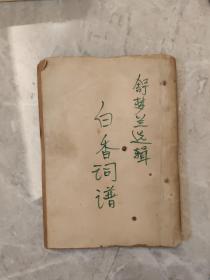 舒梦兰选辑
白香词谱